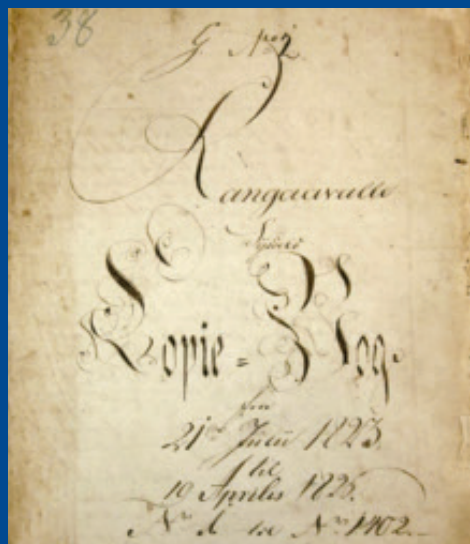 38
G. No 2
Rangaavalle
Syssels
Kopie = Bog.
fra
21de Junii 1823.
til
19 Aprilis 1825.
No 1 til No 1402.